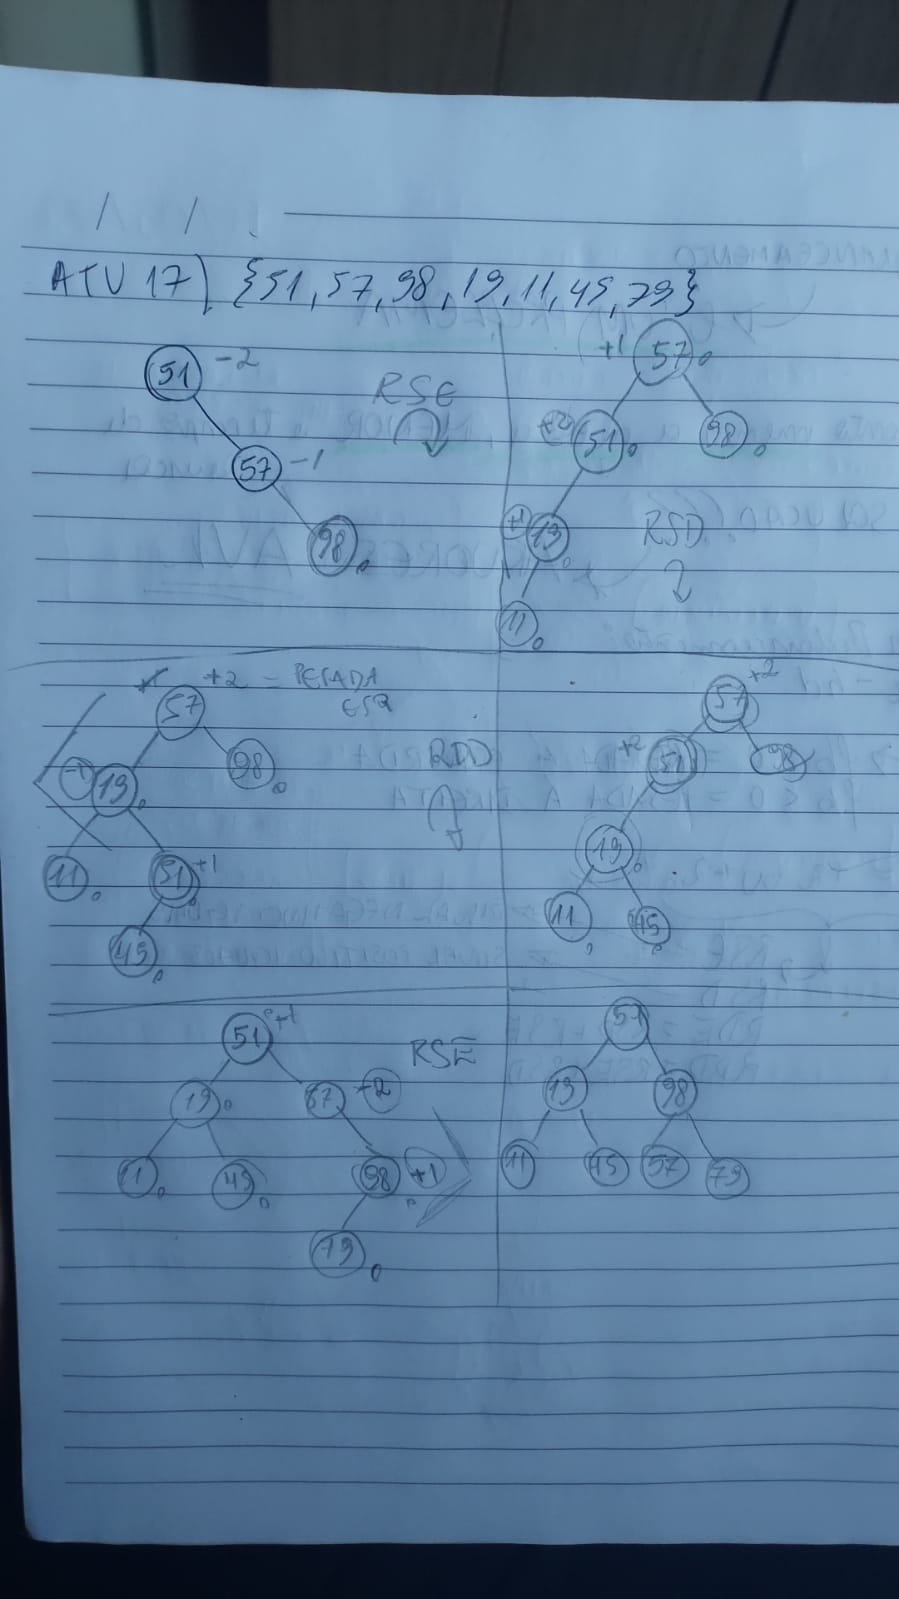 / /
ATU 17) {51, 57, 98, 19, 11, 45, 79}
51 -2
RSE
57 -1
98 0
+1 57 0
+2 51 0
98 0
+1 19 0
RSD
11 0
57 +2 = PESADA
ESQ
-1 19 0
98 0
RDD
11 0
51 +1
45 0
57 +2
+2 51
98
19 0
11 0
45 0
51 +1
RSE
19 0
57 +2
11 0
45 0
98 +1
79 0
51
19
98
11
45
57
79